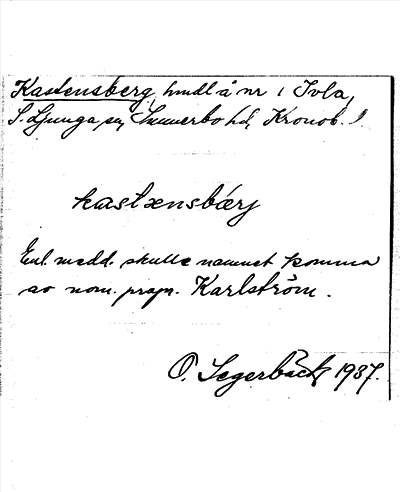 Kastensberg, hmdl å nr 1 Ivla,
S. Ljunga sn, Sunnerbo hd, Kronob. l
kastænsbærj
Enl. medd. skulle namnet komma
av nom. propr. Karlström.
O. Segerbäck 1937.